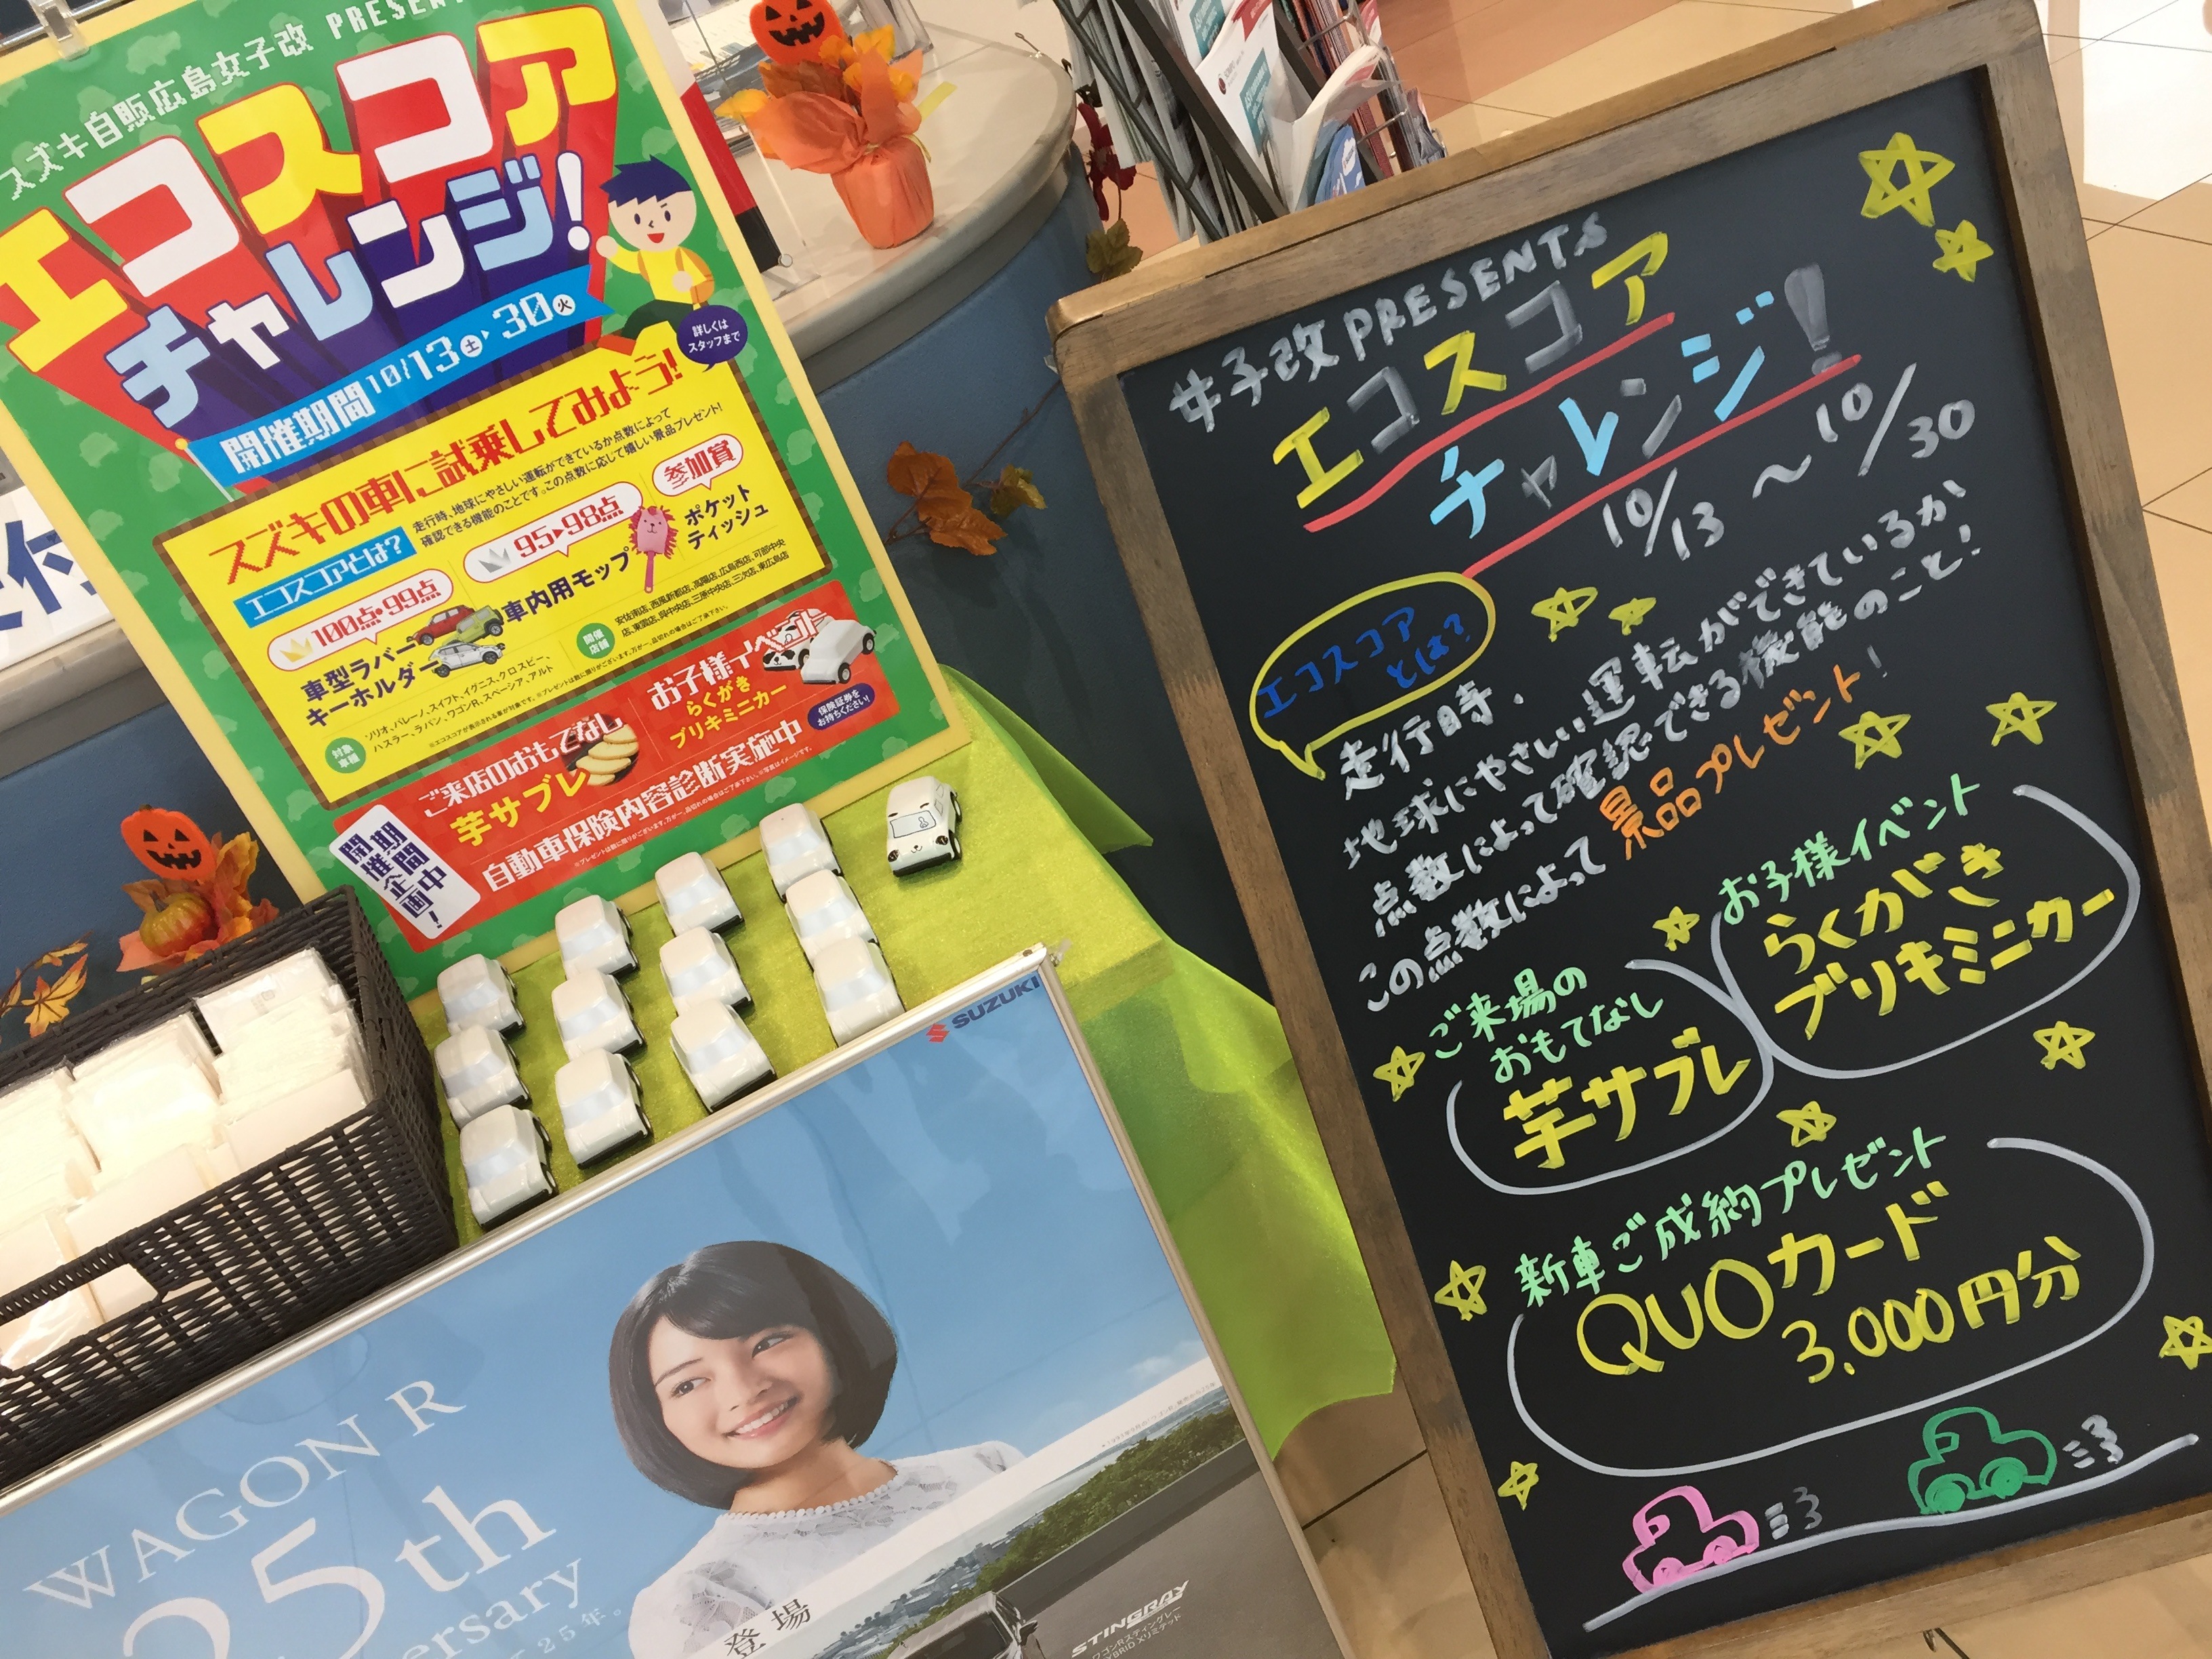 スズキ自販広島女子改 PRESENT
エコスコア
チャレンジ!
開催期間 10/13土▶30火
詳しくは
スタッフまで
スズキの車に試乗してみよう!
エコスコアとは?
走行時、地球にやさしい運転ができているか点数によって
確認できる機能のことです。この点数に応じて嬉しい景品プレゼント!
100点・99点
車型ラバー
キーホルダー
95▶98点
車内用モップ
参加賞
ポケット
ティッシュ
対象
車種
ソリオ、バレーノ、スイフト、イグニス、クロスビー、
ハスラー、ラパン、ワゴンR、スペーシア、アルト
開催
店舗
期間中
開催企画!
ご来店のおもてなし
芋サブレ
お子様イベント
らくがき
ブリキミニカー
自動車保険内容診断実施中
保険証券を
お持ちください!
SUZUKI
WAGON R
25th
ersary
25年。
登場
STINGRAY
女子改 PRESENTS
エコスコア
チャレンジ!
10/13 〜 10/30
エコスコア
とは?
走行時、
地球にやさしい運転ができているか
点数によって確認できる機能のこと!
この点数によって景品プレゼント!
お子様イベント
らくがき
ブリキミニカー
ご来場の
おもてなし
芋サブレ
新車ご成約プレゼント
QUOカード
3,000円分